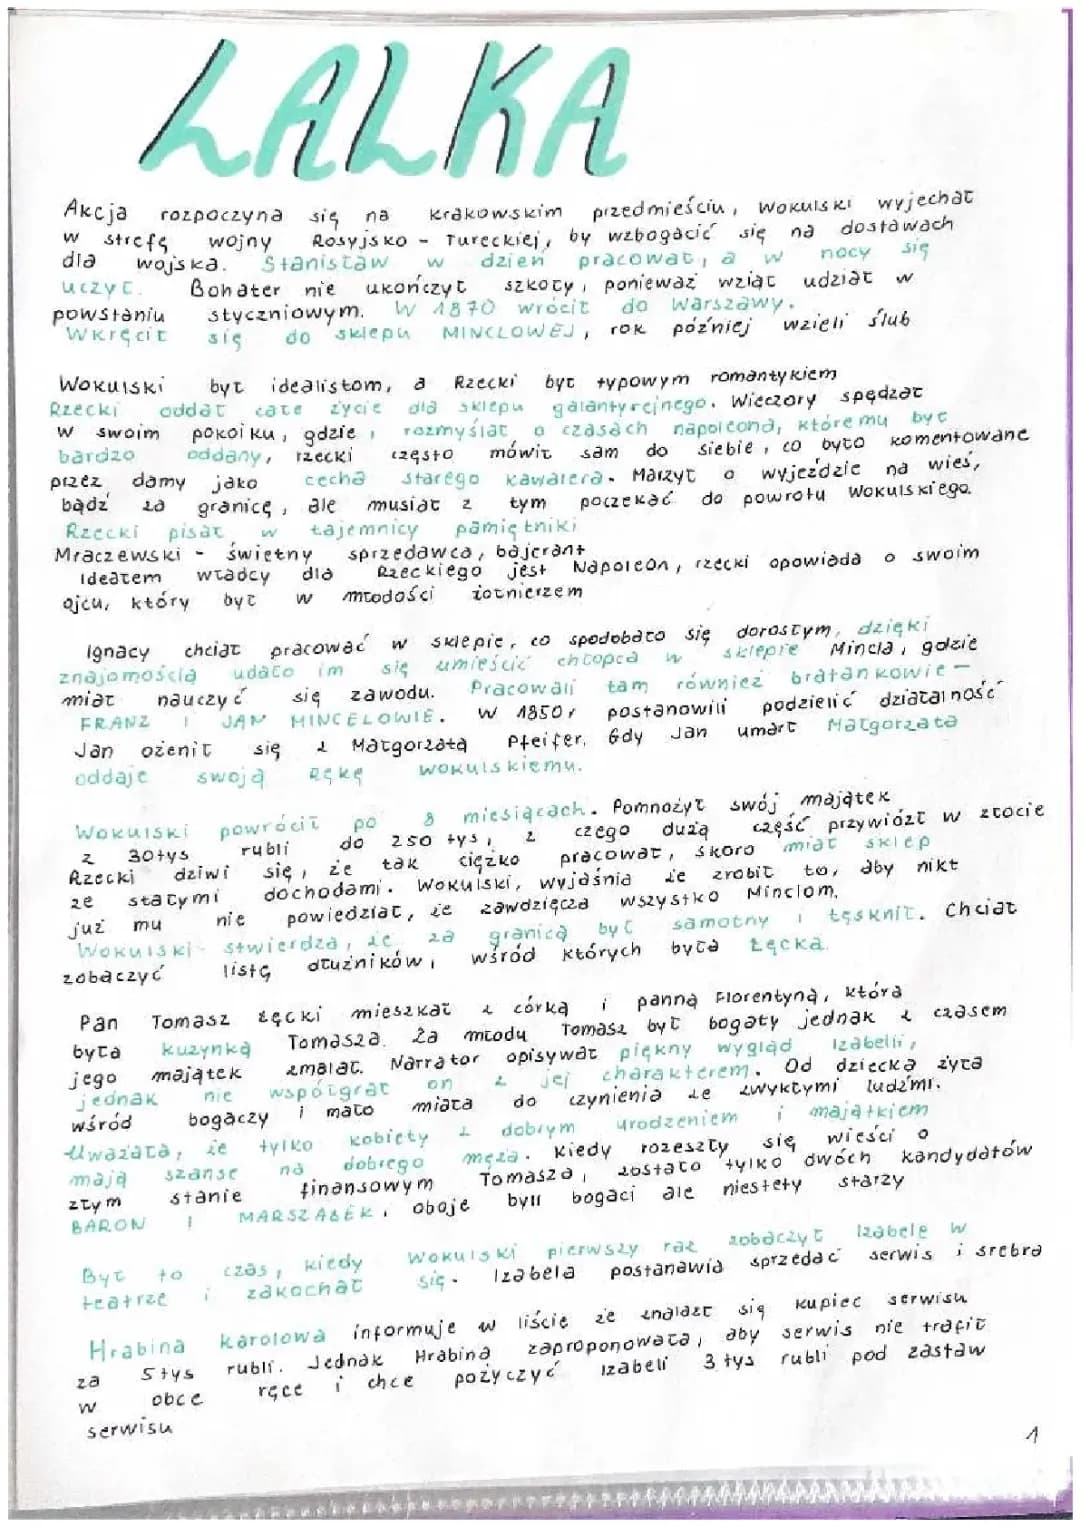 LALKA
Akcja rozpoczyna się na krakowskim przedmieściu, Wokulski wyjechał
w strefę wojny Rosyjsko - Tureckiej, by wzbogacić się na dostawach
dla wojska. Stanisław w dzień pracował, a w nocy się
uczył. Bohater nie ukończył szkoły, ponieważ wziął udział w
powstaniu styczniowym. W 1870 wrócił do Warszawy.
Wkręcił się do sklepu MINCLOWEJ, rok później wzieli ślub
Wokulski był idealistom, a Rzecki był typowym romantykiem
Rzecki oddał całe życie dla sklepu galantyrejnego. Wieczory spędzał
w swoim pokoiku, gdzie, rozmyślał o czasach napoleona, któremu był
bardzo oddany, rzecki często mówił sam do siebie, co było komentowane
przez damy jako cecha starego kawalera. Marzył o wyjeździe na wieś,
bądź za granicę, ale musiał z tym poczekać do powrotu Wokulskiego.
Rzecki pisał w tajemnicy pamiętniki
Mraczewski - świetny sprzedawca, bajerant
Ideałem władcy dla Rzeckiego jest Napoleon, rzecki opowiada o swoim
ojcu, który był w młodości żołnierzem
Ignacy chciał pracować w sklepie, co spodobało się dorosłym, dzięki
znajomością udało im się umieścić chłopca w sklepie Mincla, gdzie
miał nauczyć się zawodu. Pracowali tam również bratankowie -
FRANZ I JAN MINCELOWIE. W 1850r postanowili podzielić działalność
Jan ożenił się z Małgorzatą Pfeifer. Gdy Jan umarł Małgorzata
oddaje swoją Rękę wokulskiemu.
Wokulski powrócił po 8 miesiącach. Pomnożył swój majątek
z 30tys rubli do 250 tys, z czego dużą część przywiózł w złocie
Rzecki dziwi się, że tak ciężko pracował, skoro miał sklep
ze stałymi dochodami. Wokulski, wyjaśnia że zrobił to, aby nikt
już mu nie powiedział, że zawdzięcza wszystko Minclom.
Wokulski stwierdza, że za granicą był samotny i tęsknił. Chciał
zobaczyć listę dłużników, wśród których była Łęcka.
Pan Tomasz Łęcki mieszkał z córką i panną Florentyną, która
była kuzynką Tomasza. Za młodu Tomasz był bogaty jednak z czasem
jego majątek zmalał. Narrator opisywał piękny wygląd Izabelii,
jednak nie współgrał on z jej charakterem. Od dziecka żyła
wśród bogaczy i mało miała do czynienia ze zwykłymi ludźmi.
Uważała, że tylko kobiety z dobrym urodzeniem i majątkiem
mają szanse na dobrego męża. Kiedy rozeszły się wieści o
złym stanie finansowym Tomasza, zostało tylko dwóch kandydatów
BARON I MARSZAŁEK, oboje byli bogaci ale niestety starzy
Był to czas, kiedy Wokulski pierwszy raz zobaczył Izabele w
teatrze i zakochał się. Izabela postanawia sprzedać serwis i srebra
Hrabina karolowa informuje w liście że znalazł się kupiec serwisu
za 5tys rubli. Jednak Hrabina zaproponowała, aby serwis nie trafił
w obce ręce i chce pożyczyć Izabeli 3 tys rubli pod zastaw
serwisu
1